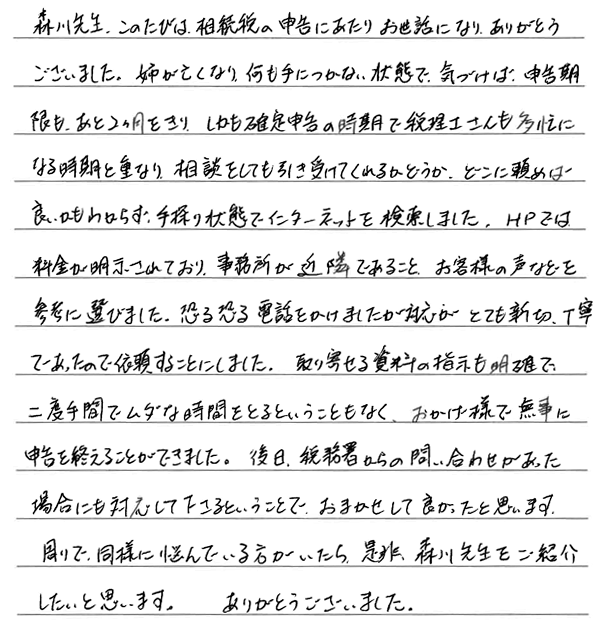 森川先生、このたびは、相続税の申告にあたりお世話になり、ありがとう
ございました。姉が亡くなり、何も手につかない状態で、気づけば、申告期
限も、あと2ヶ月をきり、しかも確定申告の時期で税理士さんも多忙に
なる時期と重なり、相談をしても引き受けてくれるかどうか、どこに頼めば
良いかもわからず、手探り状態でインターネットを検索しました。HPでは
料金が明示されており、事務所が近隣であること、お客様の声などを
参考に選びました。恐る恐る電話をかけましたが対応がとても親切、丁寧
であったので依頼することにしました。取り寄せる資料の指示も明確で、
二度手間でムダな時間をとるということもなく、おかげ様で無事に
申告を終えることができました。後日、税務署からの問い合わせがあった
場合にも対応して下さるということで、おまかせして良かったと思います。
周りで、同様に悩んでいる方がいたら、是非、森川先生をご紹介
したいと思います。 ありがとうございました。